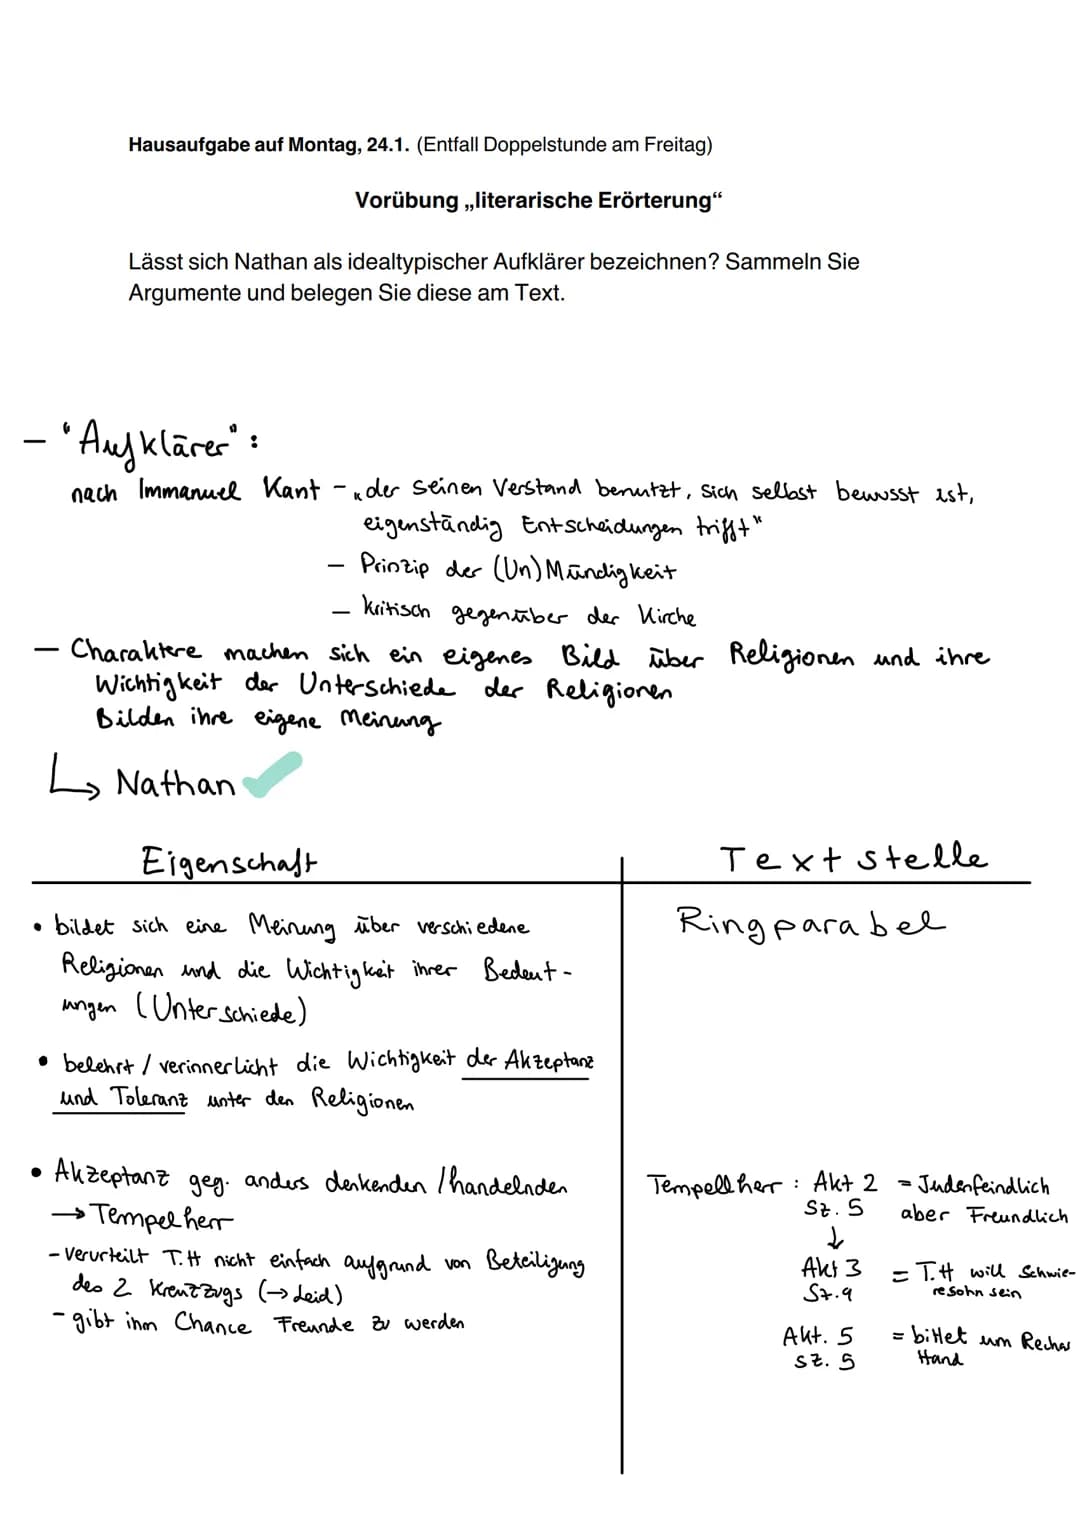 Hausaufgabe auf Montag, 24.1. (Entfall Doppelstunde am Freitag)
Vorübung „literarische Erörterung“
Lässt sich Nathan als idealtypischer Aufklärer bezeichnen? Sammeln Sie
Argumente und belegen Sie diese am Text.
- "Aufklärer":
nach Immanuel Kant - „der seinen Verstand benutzt, sich selbst bewusst ist,
eigenständig Entscheidungen trifft"
- Prinzip der (Un)Mündigkeit
- kritisch gegenüber der Kirche
- Charaktere machen sich ein eigenes Bild über Religionen und ihre
Wichtigkeit der Unterschiede der Religionen
Bilden ihre eigene Meinung
↳ Nathan ✓
Eigenschaft
• bildet sich eine Meinung über verschiedene
Religionen und die Wichtigkeit ihrer Bedeut-
ungen (Unterschiede)
• belehrt / verinnerlicht die Wichtigkeit der Akzeptanz
und Toleranz unter den Religionen
• Akzeptanz geg. anders denkenden / handelnden
→ Tempelherr
- verurteilt T.H nicht einfach aufgrund von Beteiligung
des 2 Kreuzzugs (→ Leid)
- gibt ihm Chance Freunde zu werden
Textstelle
Ringparabel
Tempellherr : Akt 2 = Judenfeindlich
Sz. 5 aber Freundlich
↓
Akt 3 = T.H will Schwie-
Sz. 9 resohn sein
Akt. 5 = bittet um Rechas
sz. 5 Hand